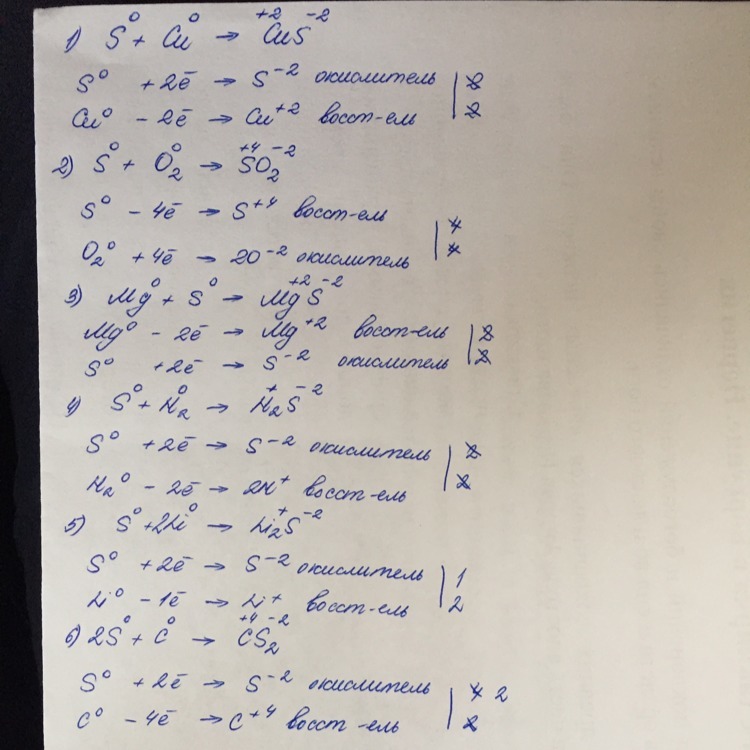 1) S⁰ + Cu⁰ → Cu⁺²S⁻²
S⁰ + 2ē → S⁻² окислитель | 2
Cu⁰ − 2ē → Cu⁺² восст-ель | 2
2) S⁰ + O₂⁰ → S⁺⁴O₂⁻²
S⁰ − 4ē → S⁺⁴ восст-ель | 4
O₂⁰ + 4ē → 2O⁻² окислитель | 4
3) Mg⁰ + S⁰ → Mg⁺²S⁻²
Mg⁰ − 2ē → Mg⁺² восст-ель | 2
S⁰ + 2ē → S⁻² окислитель | 2
4) S⁰ + H₂⁰ → H₂⁺S⁻²
S⁰ + 2ē → S⁻² окислитель | 2
H₂⁰ − 2ē → 2H⁺ восст-ель | 2
5) S⁰ + 2Li⁰ → Li₂⁺S⁻²
S⁰ + 2ē → S⁻² окислитель | 1
Li⁰ − 1ē → Li⁺ восст-ель | 2
6) 2S⁰ + C⁰ → C⁺⁴S₂⁻²
S⁰ + 2ē → S⁻² окислитель | 4 2
C⁰ − 4ē → C⁺⁴ восст-ель | 2